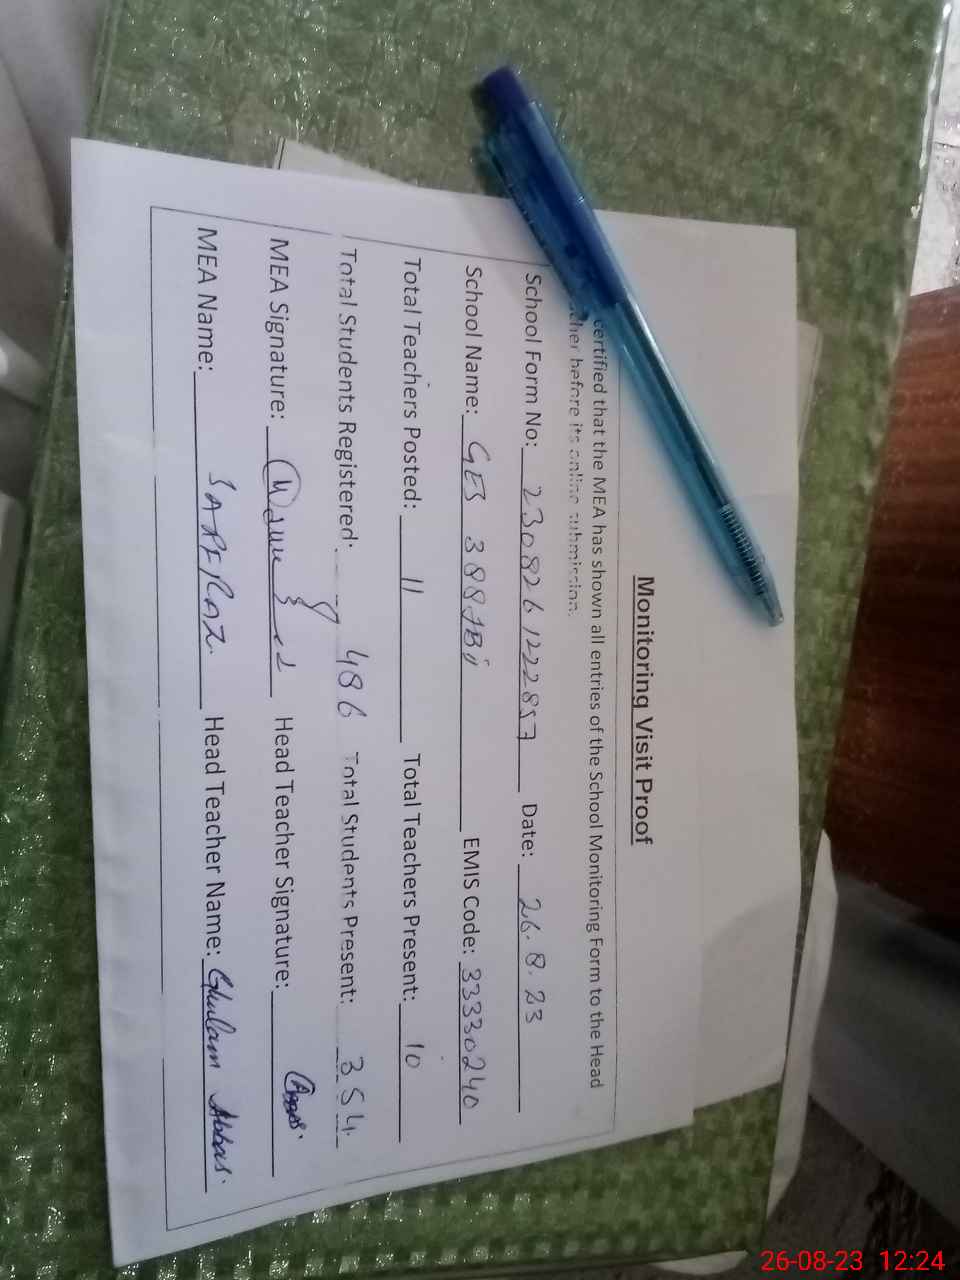 Monitoring Visit Proof
certified that the MEA has shown all entries of the School Monitoring Form to the Head
before its online submission.
School Form No: 230826122857 Date: 26.8.23
School Name: GES 388JB EMIS Code: 33330240
Total Teachers Posted: 11 Total Teachers Present: 10
Total Students Registered: 486 Total Students Present: 354
MEA Signature: Head Teacher Signature:
MEA Name: SARFRAZ Head Teacher Name: Ghulam Abbas.
26-08-23 12:24